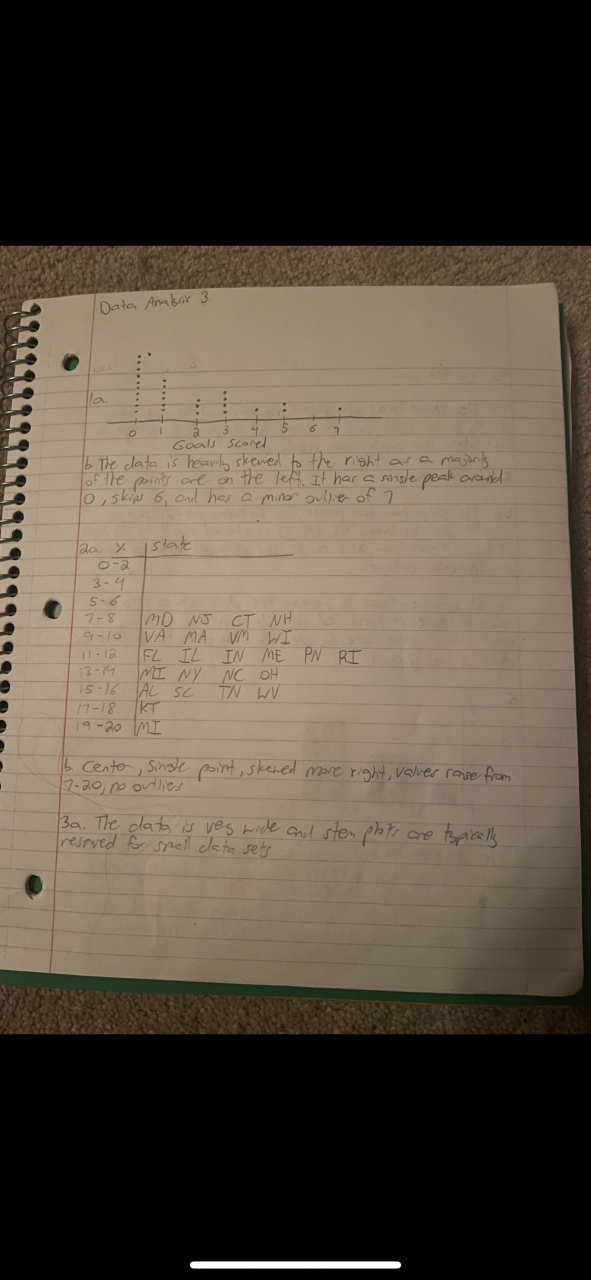 Data Analysis 3
1a.
0 1 2 3 4 5 6 7
Goals Scored
b The data is heavily skewed to the right as a majority
of the points are on the left. It has a single peak around
0, skips 6, and has a minor outlier of 7
2a % state
0-2
3-4
5-6
7-8 MD NJ CT NH
9-10 VA MA VM WI
11-12 FL IL IN ME PN RI
13-14 MI NY NC OH
15-16 AL SC TN WV
17-18 KT
19-20 MI
b Center, single point, skewed more right, values range from
7-20, no outlies
3a. The data is very wide and stem plots are typically
reserved for small data sets